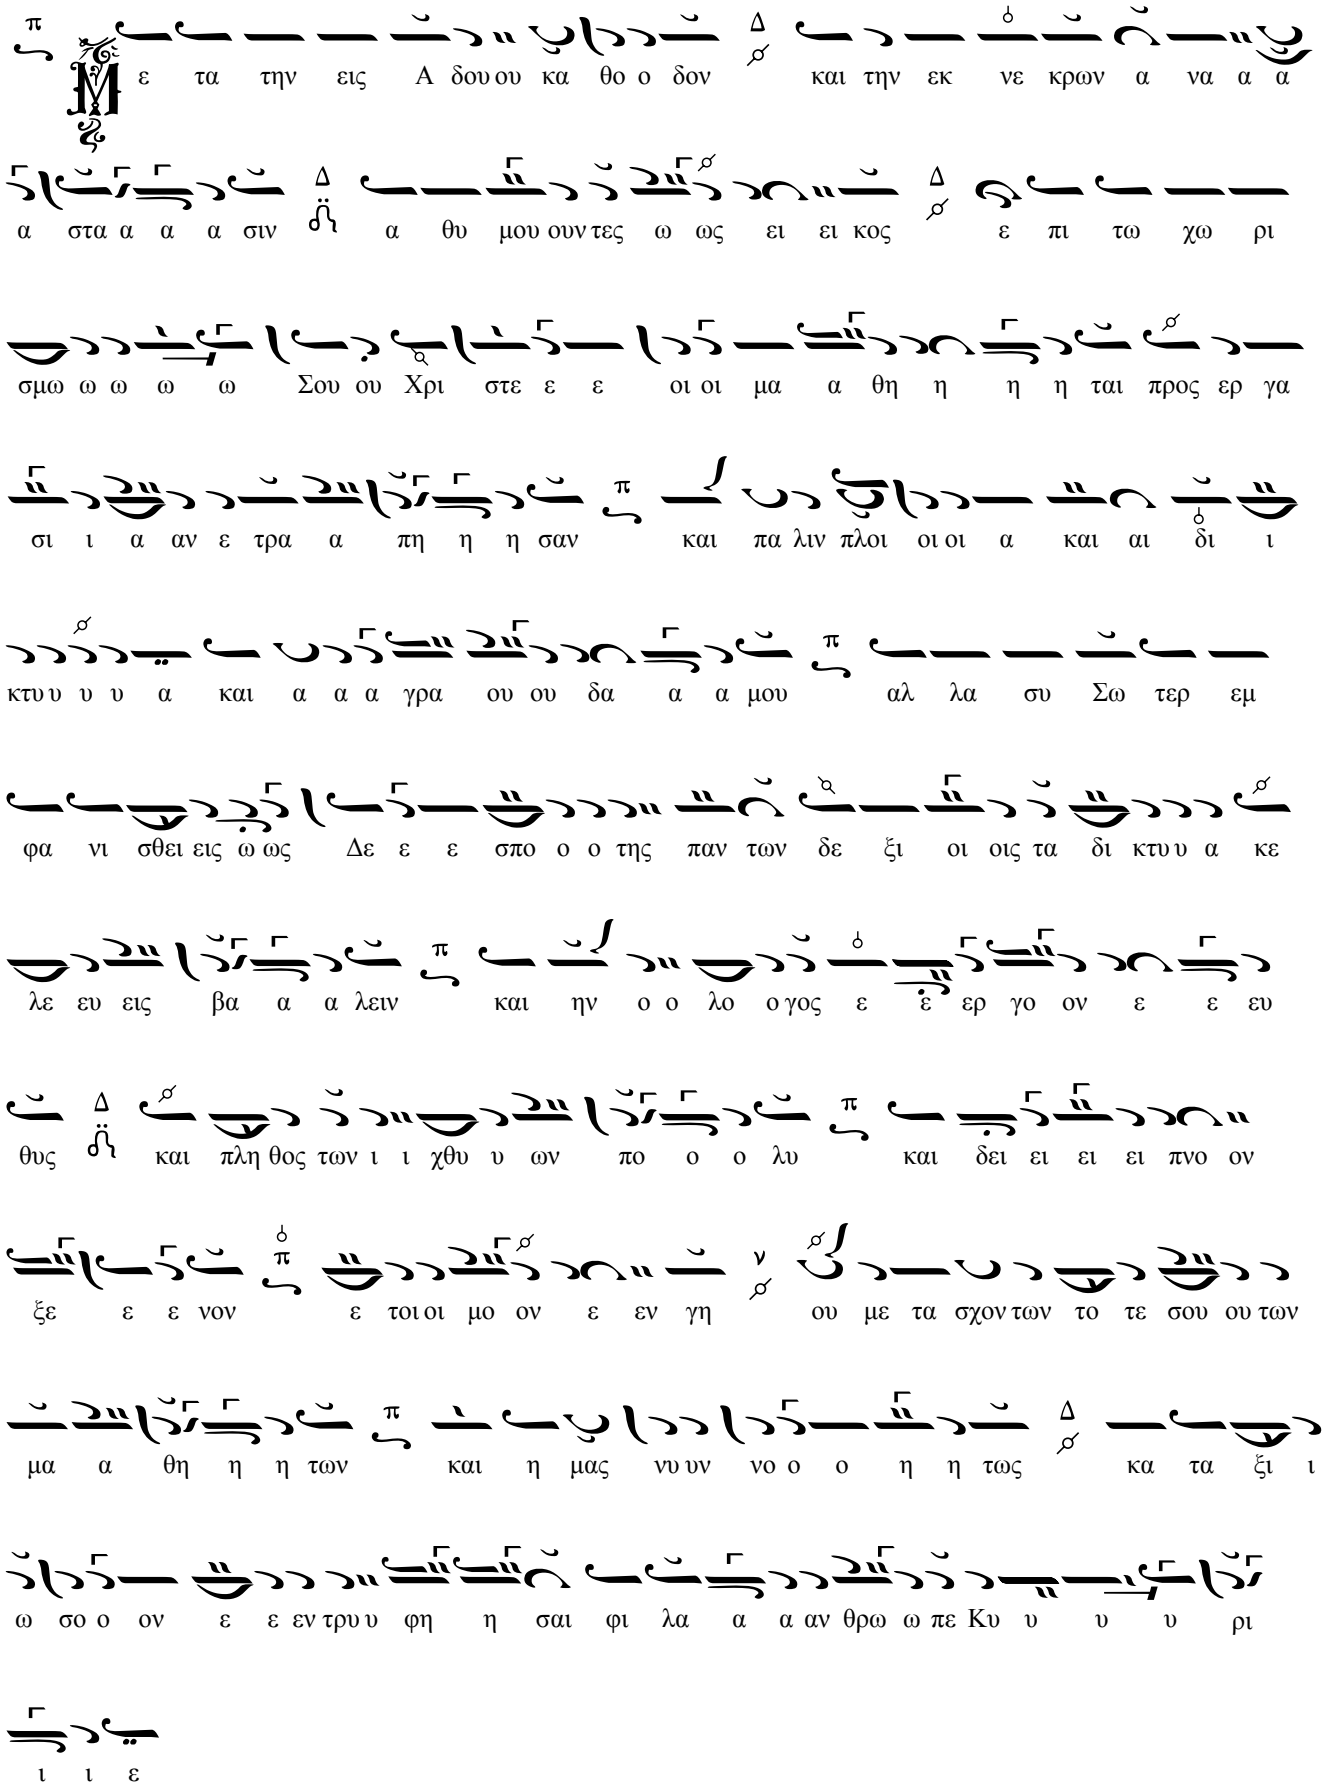 Μ ε τα την εις Α δου ου κα θο ο δον και την εκ νε κρων α να α α
α στα α α α σιν α θυ μου ουν τες ω ως ει ει κος ε πι τω χω ρι
σμω ω ω ω ω Σου ου Χρι στε ε ε οι οι μα α θη η η η ται προς ερ γα
σι ι α αν ε τρα α πη η η σαν και πα λιν πλοι οι οι α και αι δι ι
κτυ υ υ υ α και α α α γρα ου ου δα α α μου αλ λα συ Σω τερ εμ
φα νι σθει εις ω ως Δε ε ε σπο ο ο της παν των δε ξι οι οις τα δι κτυ υ α κε
λε ευ εις βα α α λειν και ην ο ο λο ο γος ε ε ερ γο ον ε ε ευ
θυς και πλη θος των ι ι χθυ υ ων πο ο ο λυ και δει ει ει ει πνο ον
ξε ε ε νον ε τοι οι μο ον ε εν γη ου με τα σχον των το τε σου ου των
μα α θη η η των και η μας νυ υν νο ο ο η η τως κα τα ξι ι
ω σο ο ον ε ε εν τρυ υ φη η σαι φι λα α α αν θρω ω πε Κυ υ υ υ ρι
ι ι ε